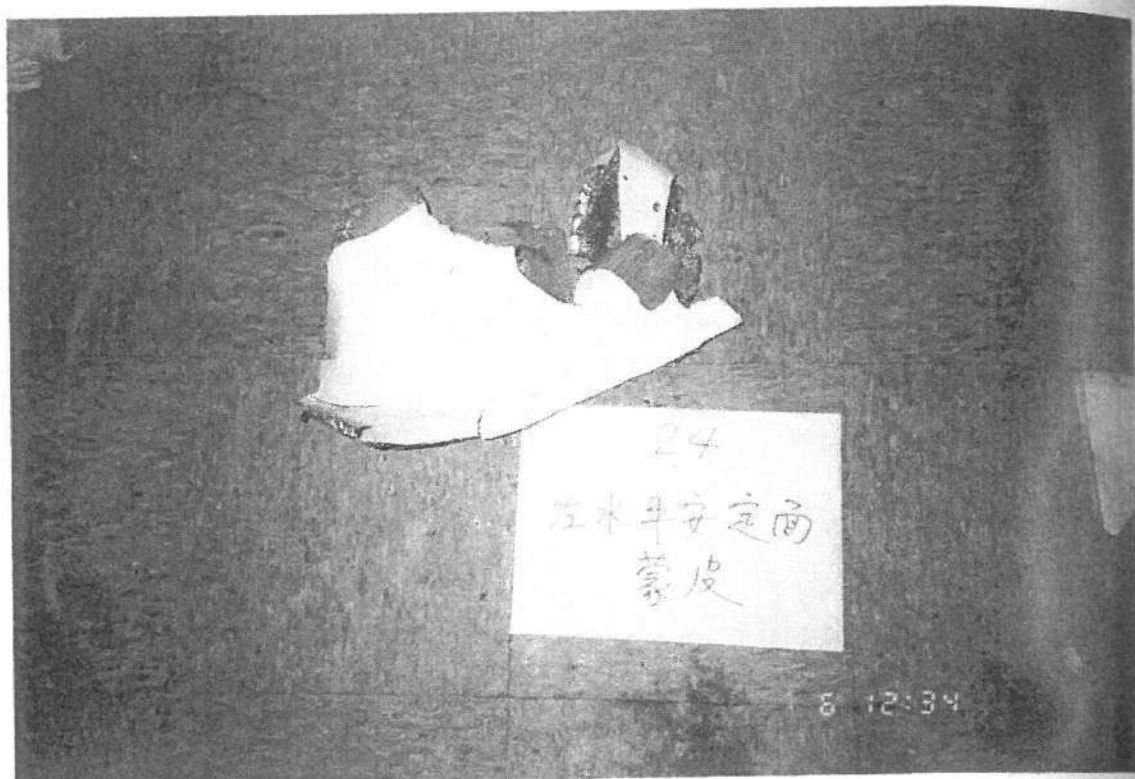 24
左水平安定面
蒙皮
6 12:34